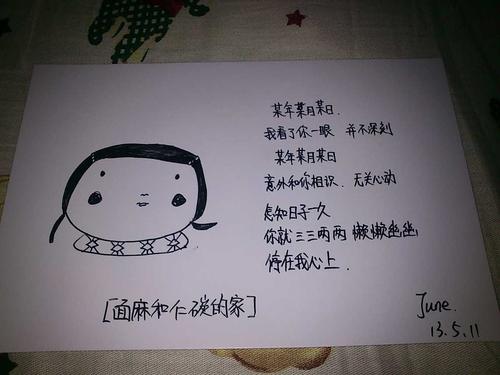 某年某月某日.
我看了你一眼 并不深刻
某年某月某日
意外和你相识. 无关心动
怎知日子一久
你就三三两两 懒懒幽幽
停在我心上.
[面麻和仁碳的家]
June.
13.5.11